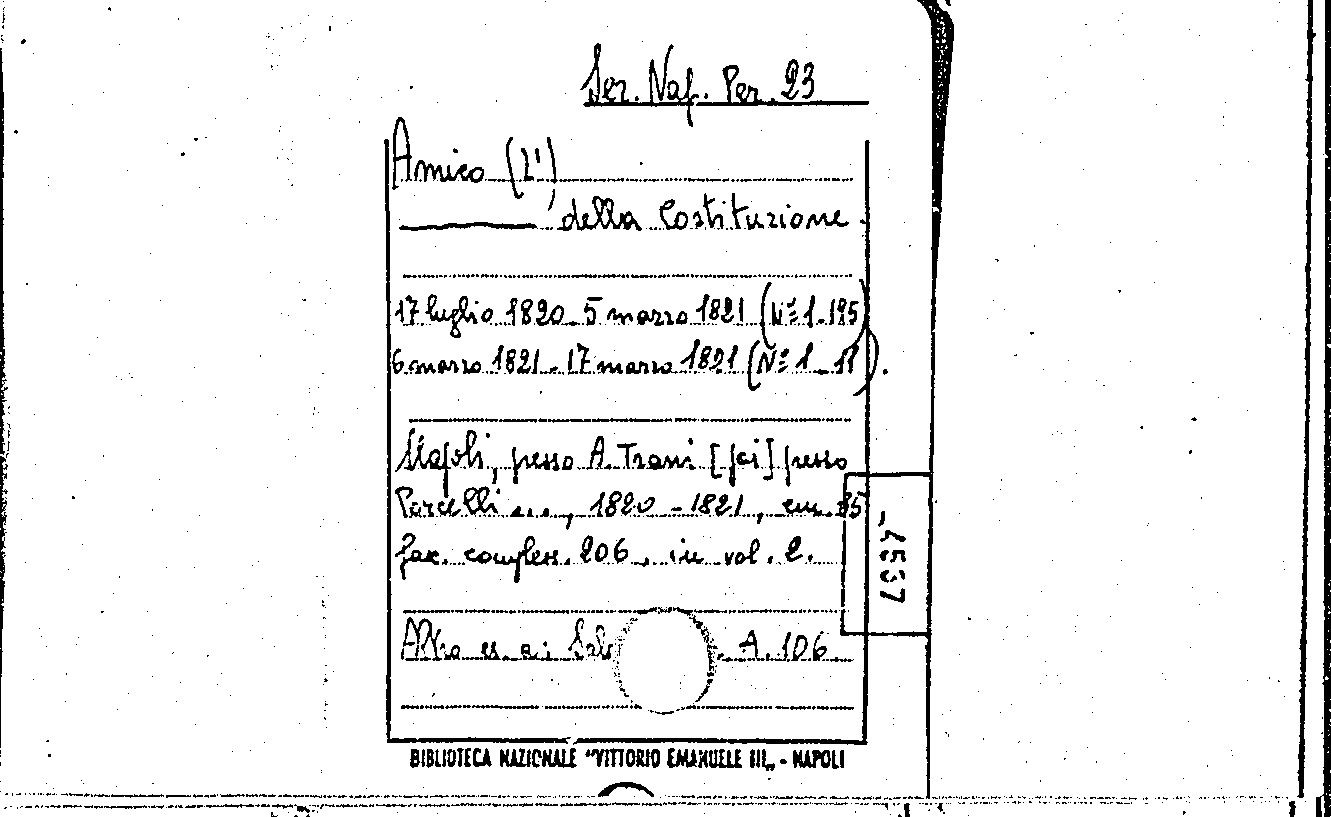 Ser. Nap. Per. 23
Amico (L')
della Costituzione.
17 luglio 1820 - 5 marzo 1821 (Nº 1 - 195)
6 marzo 1821 - 17 marzo 1821 (Nº 1 - 11).
Napoli, presso A. Trani [poi] presso
Porcelli ..., 1820 - 1821, cm. 35
fac. compless. 206, in vol. 2.
Altro es. ai A. 106.
BIBLIOTECA NAZIONALE "VITTORIO EMANUELE III„ - NAPOLI
-4537